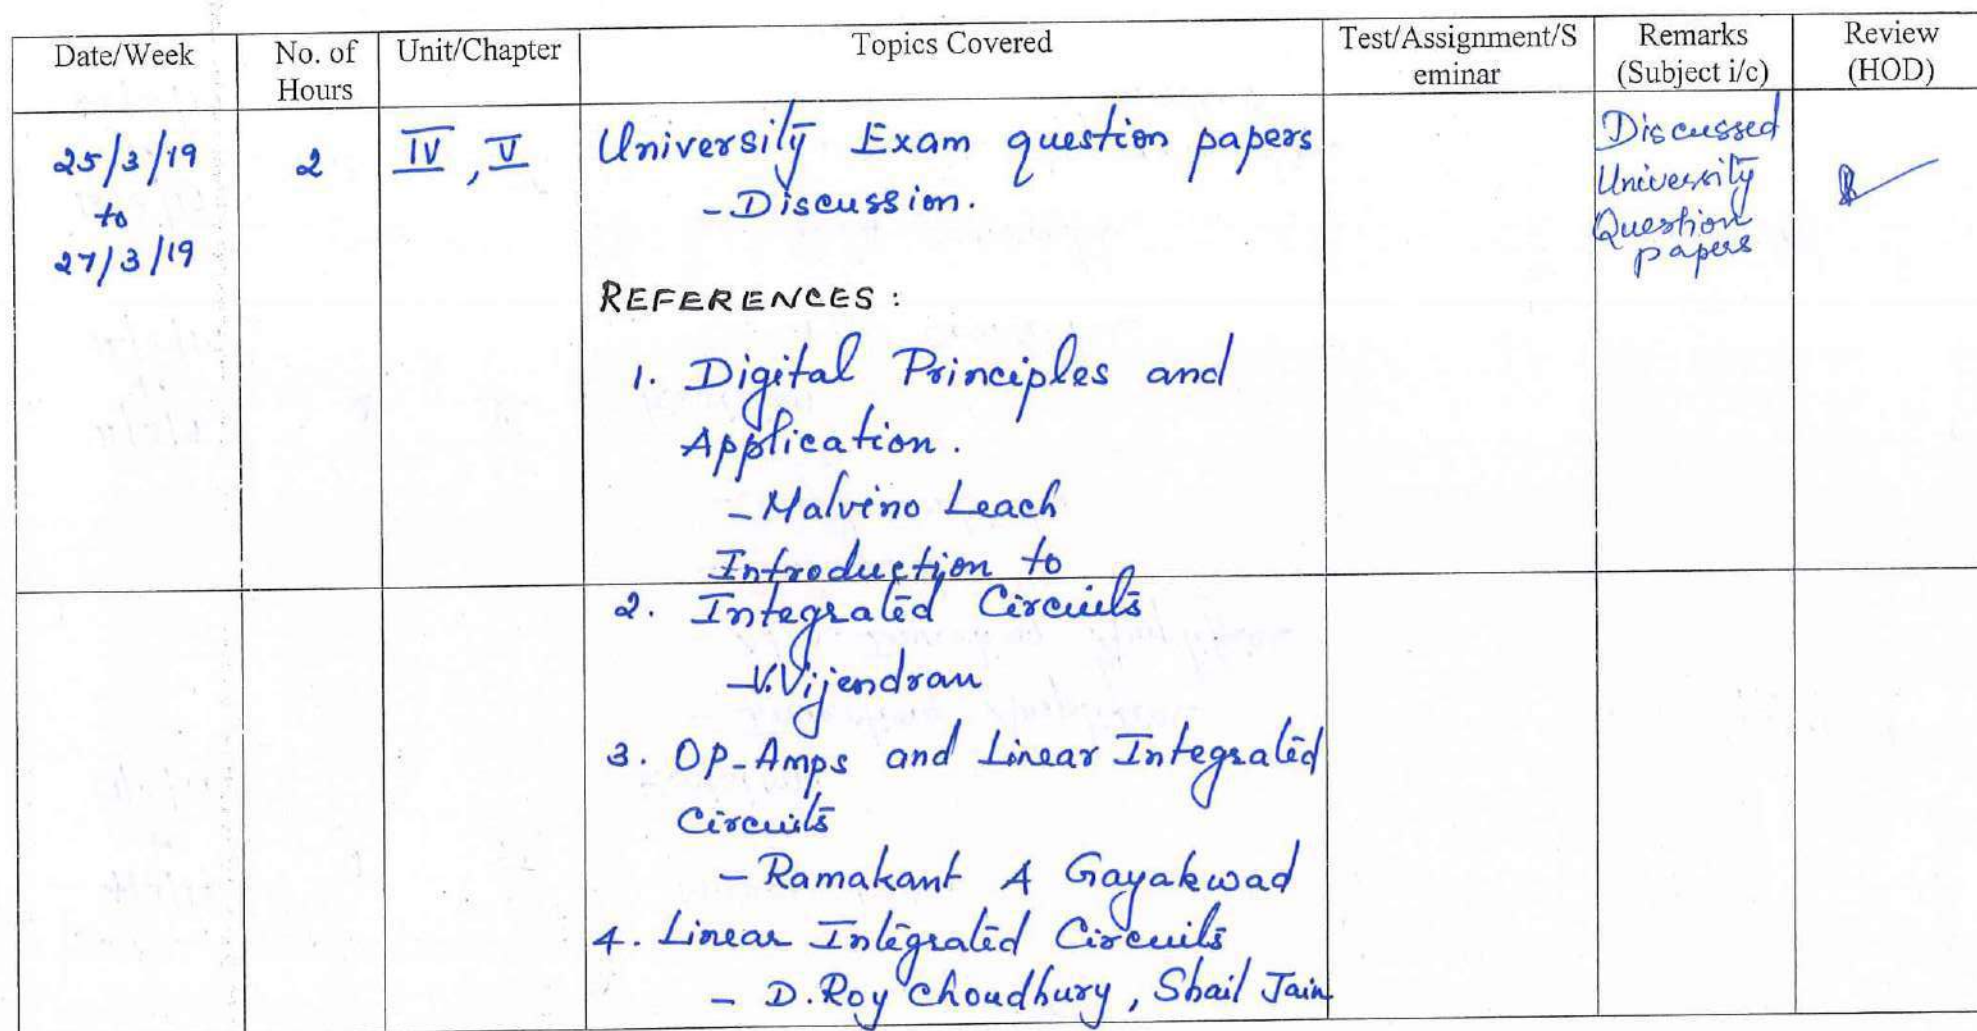 Date/Week
No. of
Hours
Unit/Chapter
Topics Covered
Test/Assignment/S
eminar
Remarks
(Subject i/c)
Review
(HOD)
25/3/19
to
27/3/19
2
IV, V
University Exam question papers
- Discussion.
Discussed
University
Question
papers
REFERENCES :
1. Digital Principles and
Application.
- Malvino Leach
Introduction to
2. Integrated Circuits
- V.Vijendran
3. OP-Amps and Linear Integrated
Circuits
- Ramakant A Gayakwad
4. Linear Integrated Circuits
- D.Roy Choudhury, Shail Jain